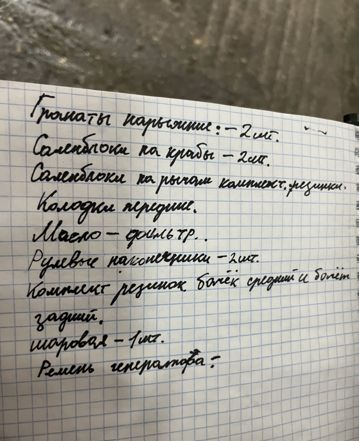 Гранаты нарыжние: - 2 шт.
Саленблоки на крабы - 2шт.
Саленблоки на рычаги комплект. резинки.
Колодки передние.
Масло - фильтр..
Рулевые наконечники - 2 шт.
Комплект резинок балёк средний и балёк
задний.
шаровая - 1 шт.
Ремень генератора -